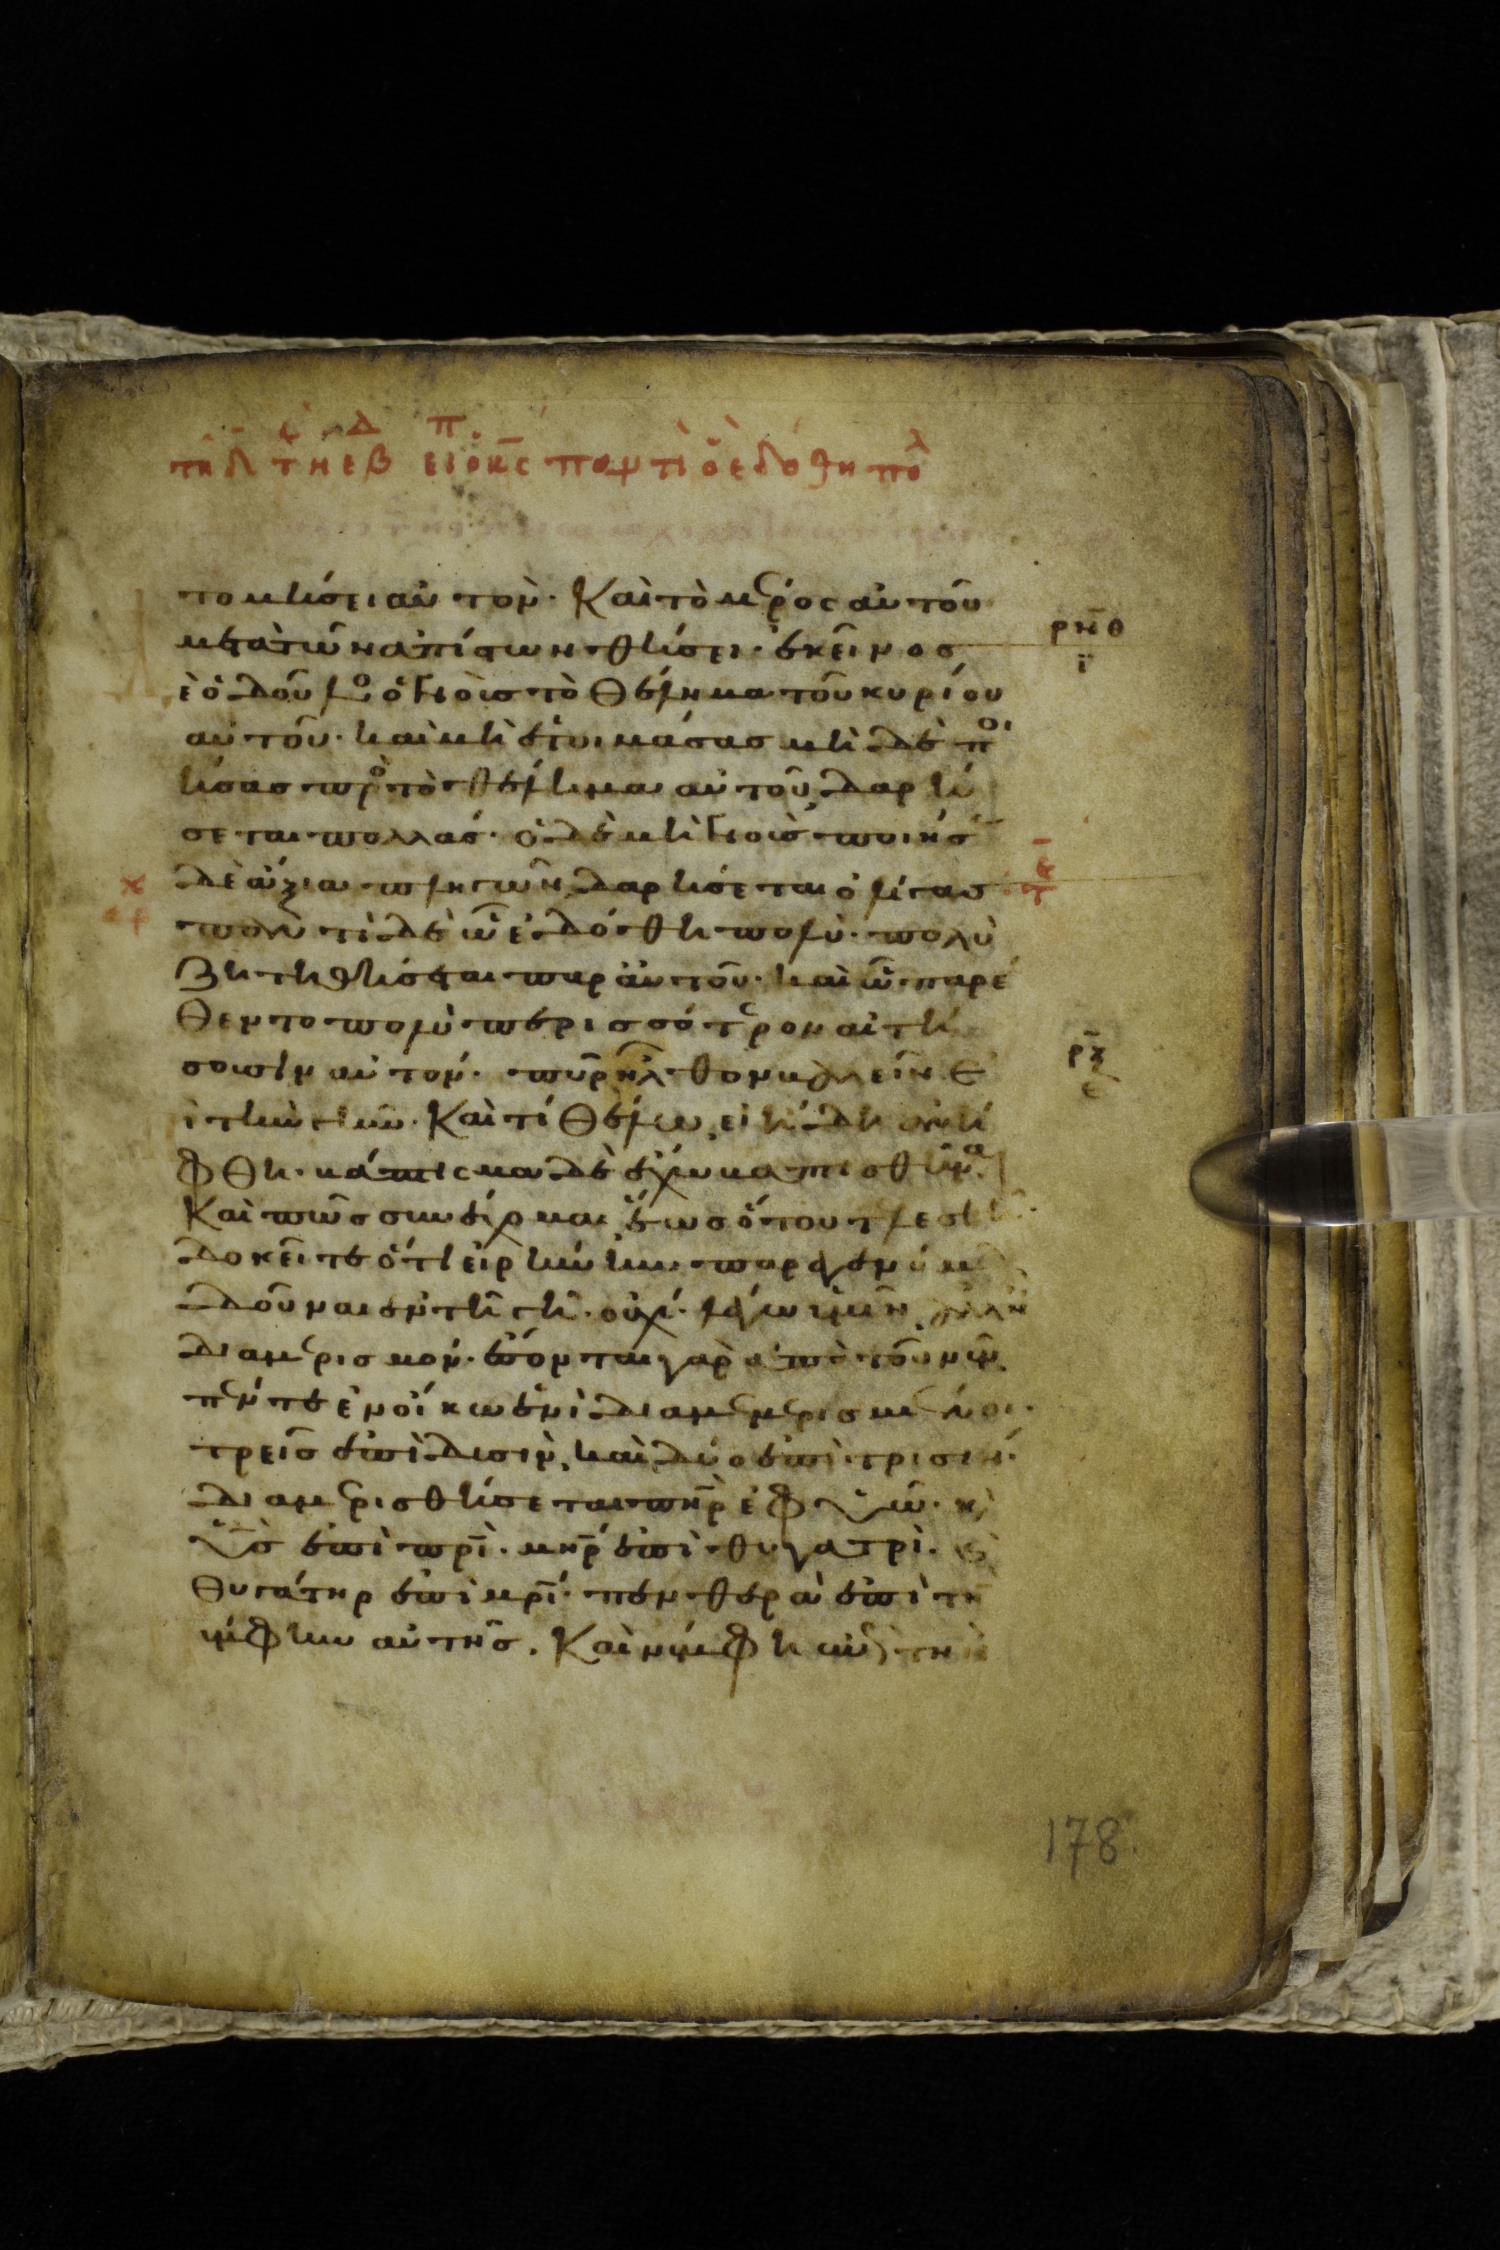 τη δ τῆς εβ ειο κς παντὶ ὁ ἐδόθη πολ
τομήσει αὐτὸν· Καὶ τὸ μέρος αὐτοῦ
μετὰ τῶν ἀπίστων θήσει· ἐκεῖνος
ρνθ
ϊ
δὲ ὁ δοῦλος ὁ γνοὺς τὸ θέλημα τοῦ κυρίου
αὐτοῦ· καὶ μὴ ἑτοιμάσας μὴ δὲ ποι
ήσας πρὸς τὸ θέλημα αὐτοῦ, δαρή
σεται πολλάς· ὁ δὲ μὴ γνοὺς ποιήσας
δὲ ἄξια πληγῶν, δαρήσεται ὀλίγας
παντὶ δὲ ὧ ἐδόθη πολὺ· πολὺ
ζητηθήσεται παρ αὐτοῦ· καὶ ὧ παρέ
θεντο πολὺ περισσότερον αἰτή
σουσιν αὐτόν· πῦρ ἦλθον βαλεῖν ε
ρξ
ε
ἰς τὴν γῆν· Καὶ τί θέλω, εἰ ἤδη ἀνή
φθη· βάπτισμα δὲ ἔχω βαπτισθῆναι
Καὶ πῶς συνέχομαι, ἕως ὅτου τελεσθῆ·
δοκεῖτε ὅτι εἰρήνην παρεγενόμην
δοῦναι ἐν τῆ γῆ· οὐχί· λέγω ὑμῖν, ἀλλ ἢ
διαμερισμόν· ἔσονται γὰρ ἀπὸ τοῦ νῦν,
πέντε ἐν οἴκω ἑνὶ διαμεμερισμένοι·
τρεῖς ἐπὶ δυσὶν, καὶ δύο ἐπὶ τρισίν·
διαμερισθήσεται πηρ ἐφ υἱῶ· κ
υἱὸς ἐπὶ πρὶ· μηρ ἐπὶ θυγατρὶ· κ
θυγάτηρ ἐπὶ μρί· πενθερὰ ἐπὶ τὴν
νύμφην αὐτῆς. Καὶ νύμφη ἐπὶ τὴν
178